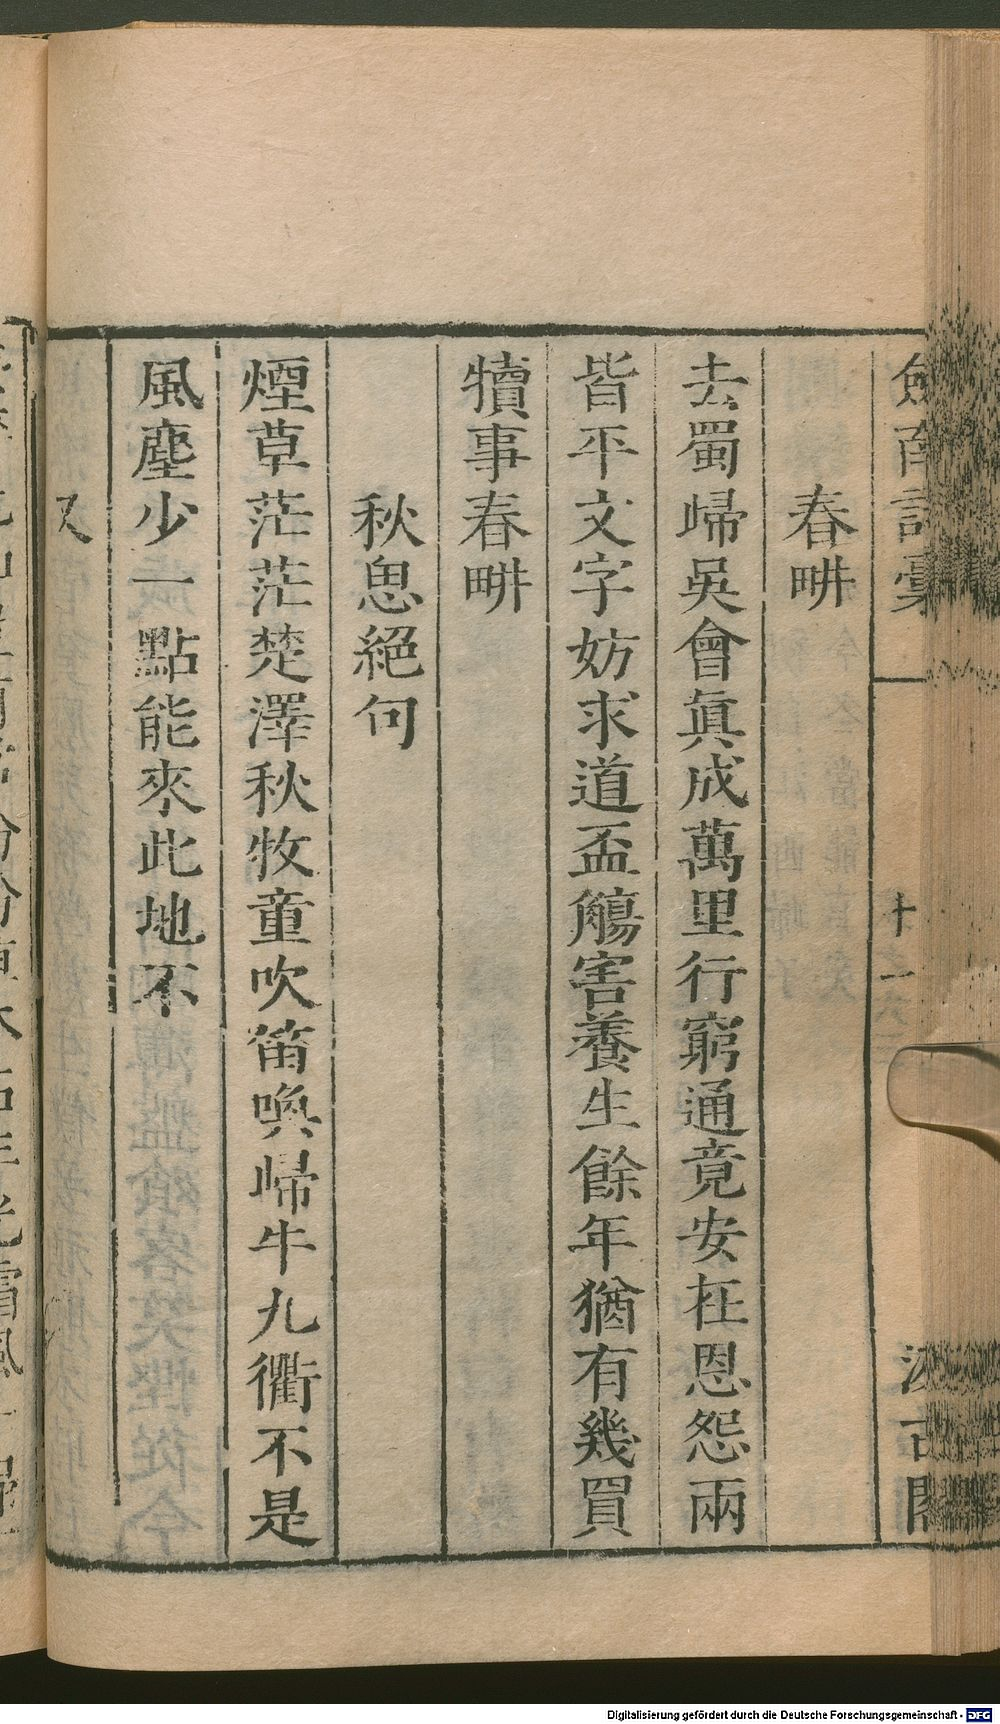 劍南詩稾 十一 汲古閣
春畊
去蜀歸吳會眞成萬里行窮通竟安在恩怨兩
皆平文字妨求道盃觴害養生餘年猶有幾買
犢事春畊
秋思絕句
煙草茫茫楚澤秋牧童吹笛喚歸牛九衢不是
風塵少一點能來此地不
又
Digitalisierung gefördert durch die Deutsche Forschungsgemeinschaft - DFG